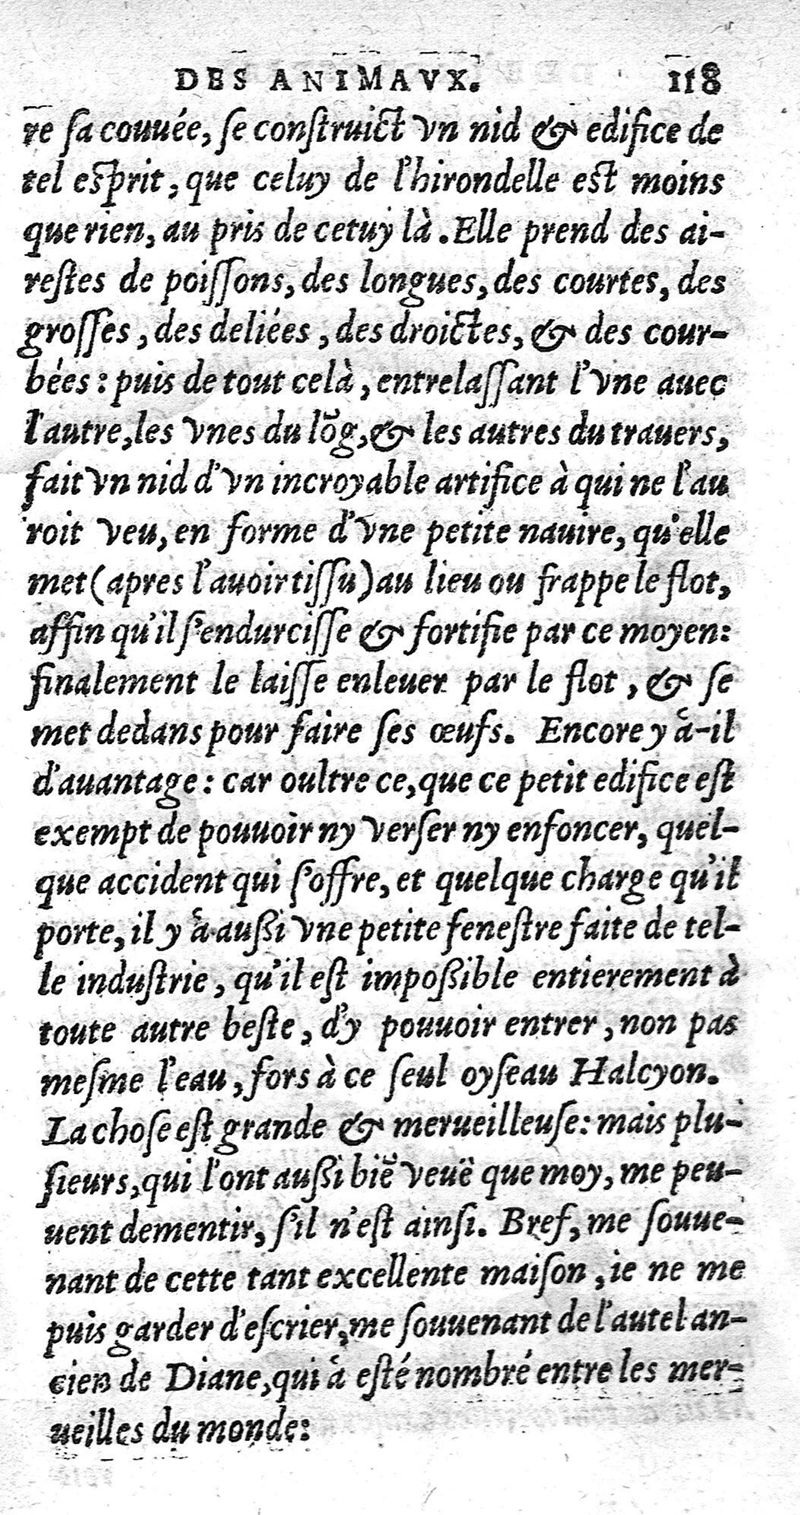 DES ANIMAVX. 118
re ſa couuée, ſe conſtruict vn nid & edifice de
tel eſprit, que celuy de l'hirondelle eſt moins
que rien, au pris de cetuy là. Elle prend des ai-
reſtes de poiſſons, des longues, des courtes, des
groſſes, des deliées, des droictes, & des cour-
bées: puis de tout celà, entrelaſſant l'vne auec
l'autre, les vnes du lõg, & les autres du trauers,
fait vn nid d'vn incroyable artifice à qui ne l'au
roit veu, en forme d'vne petite nauire, qu'elle
met (apres l'auoir tiſſu) au lieu ou frappe le flot,
affin qu'il ſ'endurciſſe & fortifie par ce moyen:
finalement le laiſſe enleuer par le flot, & ſe
met dedans pour faire ſes œufs. Encore y à-il
d'auantage: car oultre ce, que ce petit edifice eſt
exempt de pouuoir ny verſer ny enfoncer, quel-
que accident qui ſ'offre, et quelque charge qu'il
porte, il y à auſſi vne petite feneſtre faite de tel-
le induſtrie, qu'il eſt impoſſible entierement à
toute autre beſte, d'y pouuoir entrer, non pas
meſme l'eau, fors à ce ſeul oyſeau Halcyon.
La choſe eſt grande & merueilleuſe: mais plu-
ſieurs, qui l'ont auſſi biẽ veuë que moy, me peu-
uent dementir, ſ'il n'eſt ainſi. Bref, me ſouue-
nant de cette tant excellente maiſon, ie ne me
puis garder d'eſcrier, me ſouuenant de l'autel an-
cien de Diane, qui à eſté nombré entre les mer-
ueilles du monde: